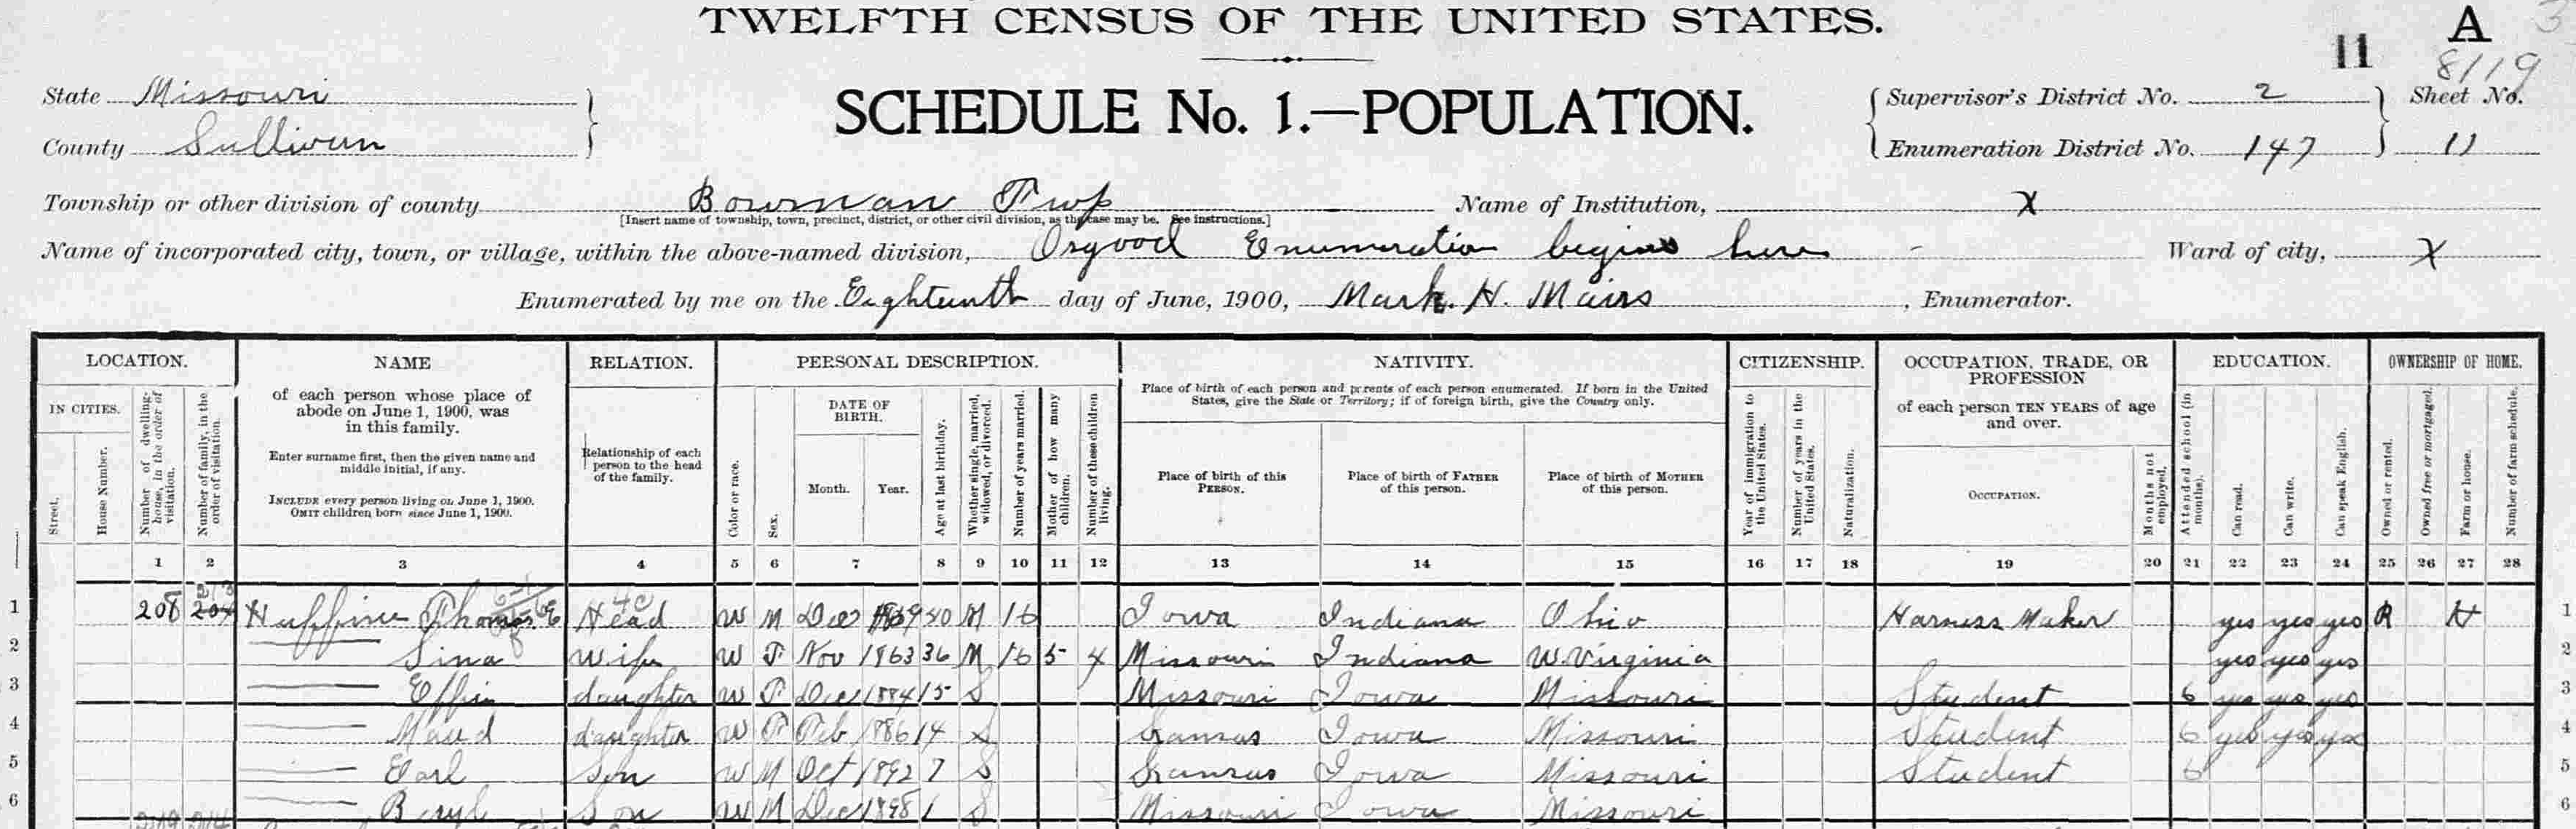 TWELFTH CENSUS OF THE UNITED STATES.
11 A
8119
State Missouri
County Sullivan
SCHEDULE No. 1.—POPULATION.
Supervisor's District No. 2 Sheet No.
Enumeration District No. 147 11
Township or other division of county Bowman Twp Name of Institution, X
[Insert name of township, town, precinct, district, or other civil division, as the case may be. See instructions.]
Name of incorporated city, town, or village, within the above-named division, Osgood Enumeration begins here Ward of city, X
Enumerated by me on the Eighteenth day of June, 1900, Mark. H. Mairs, Enumerator.
LOCATION. NAME RELATION. PERSONAL DESCRIPTION. NATIVITY. CITIZENSHIP. OCCUPATION, TRADE, OR PROFESSION EDUCATION. OWNERSHIP OF HOME.
IN CITIES.
Street.
House Number.
Number of dwelling-house, in the order of visitation.
Number of family, in the order of visitation.
of each person whose place of abode on June 1, 1900, was in this family.
Enter surname first, then the given name and middle initial, if any.
INCLUDE every person living on June 1, 1900.
OMIT children born since June 1, 1900.
Relationship of each person to the head of the family.
Color or race.
Sex.
DATE OF BIRTH.
Month. Year.
Age at last birthday.
Whether single, married, widowed, or divorced.
Number of years married.
Mother of how many children.
Number of these children living.
Place of birth of each person and parents of each person enumerated. If born in the United States, give the State or Territory; if of foreign birth, give the Country only.
Place of birth of this PERSON.
Place of birth of FATHER of this person.
Place of birth of MOTHER of this person.
Year of immigration to the United States.
Number of years in the United States.
Naturalization.
of each person TEN YEARS of age and over.
OCCUPATION.
Months not employed.
Attended school (in months).
Can read.
Can write.
Can speak English.
Owned or rented.
Owned free or mortgaged.
Farm or house.
Number of farm schedule.
1 2 3 4 5 6 7 8 9 10 11 12 13 14 15 16 17 18 19 20 21 22 23 24 25 26 27 28
1 208 204 Huffine Thomas E Head W M Dec 1859 40 M 16 Iowa Indiana Ohio Harness Maker yes yes yes R H 1
2 Sina Wife W F Nov 1863 36 M 16 5 4 Missouri Indiana W. Virginia yes yes yes 2
3 Effie daughter W F Dec 1884 15 S Missouri Iowa Missouri Student 6 yes yes yes 3
4 Maud daughter W F Feb 1886 14 S Kansas Iowa Missouri Student 6 yes yes yes 4
5 Earl Son W M Oct 1892 7 S Kansas Iowa Missouri Student 6 5
6 Beryl Son W M Dec 1898 1 S Missouri Iowa Missouri 6